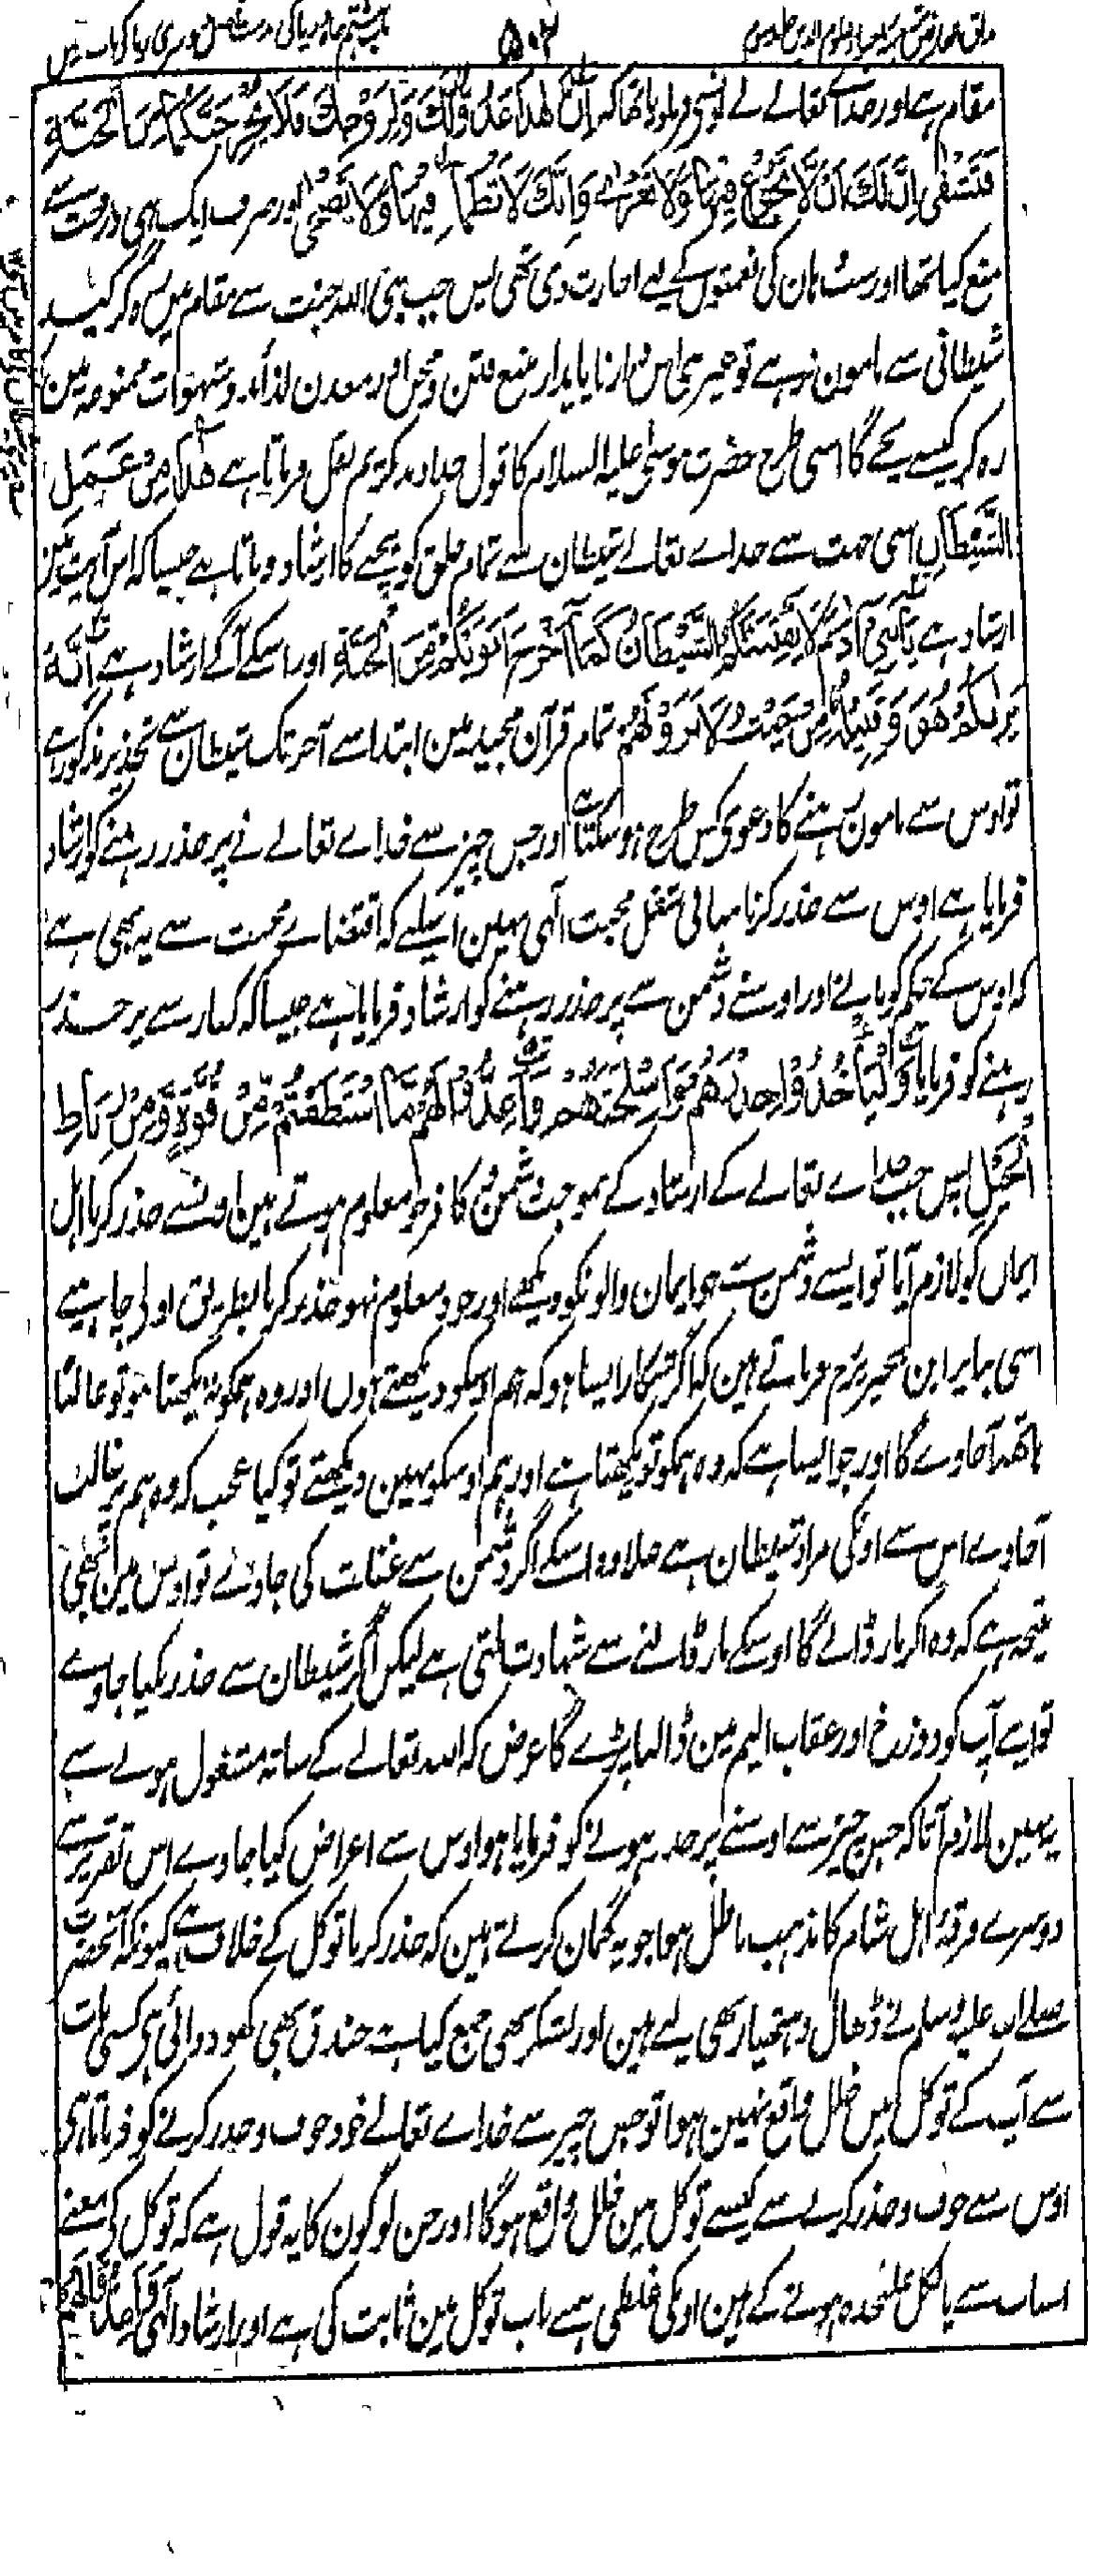 مذاق العارفین ترجمہ احیاء علوم الدین جلد سوم
۵۰۲
باب ہشتم جاہ و ریا کی مذمت فصل دوسری ریا کے بیان میں
مقام ہے اور خداے تعالے نے اونسے فرما دیا تھا کہ اِنَّ هٰذَا عَدُوٌّ لَّكَ وَلِزَوْجِكَ فَلَا يُخْرِجَنَّكُمَا مِنَ الْجَنَّةِ
فَتَشْقٰى اِنَّ لَكَ اَنْ لَّا تَجُوْعَ فِيْهَا وَلَا تَعْرٰى وَاَنَّكَ لَا تَظْمَأُ فِيْهَا وَلَا تَضْحٰى اور صرف ایک ہی درخت سے
منع کیا تھا اور سب وہان کی نعمتوں کے لیے اجازت دی تھی پس جب نبی اللہ جنت سے مقام میں رہ کر کید
شیطانی سے مامون نرہے تو غیر نبی اس دار ناپایدار منبع فتن و محن اور معدن لذائذ و شہوات ممنوعہ مین
رہ کر کیسے بچے گا اسی طرح حضرت موسیٰ علیہ السلام کا قول خداوند کریم نقل فرماتا ہے هٰذَا مِنْ عَمَلِ
الشَّيْطَانِ اسی جہت سے خداے تعالے شیطان سے تمام خلق کو بچنے کا ارشاد فرماتا ہے جیسا کہ اس آیت مین
ارشاد ہے يَا بَنِيْ اٰدَمَ لَا يَفْتِنَنَّكُمُ الشَّيْطَانُ كَمَا اَخْرَجَ اَبَوَيْكُمْ مِّنَ الْجَنَّةِ اور اسکے آگے ارشاد ہے اِنَّهٗ
يَرٰىكُمْ هُوَ وَقَبِيْلُهٗ مِنْ حَيْثُ لَا تَرَوْنَهُمْ تمام قرآن مجید مین ابتدا سے آخر تک شیطان سے تحذیر مذکور ہے
تو اوس سے مامون رہنے کا دعوی کس طرح ہو سکتا ہے اور جس چیز سے خداے تعالے نے پر حذر رہنے کو ارشاد
فرمایا ہے اوس سے حذر کرنا منافی شغل محبت الٰہی نہین اسلیے کہ اقتضاے محبت سے یہ بھی ہے
کہ اوس کے حکم کو مانے اور اوسنے دشمن سے پر حذر رہنے کو ارشاد فرمایا ہے جیسا کہ کفار سے پر حذر
رہنے کو فرمایا وَلْيَأْخُذُوْا حِذْرَهُمْ وَاَسْلِحَتَهُمْ وَاَعِدُّوْا لَهُمْ مَّا اسْتَطَعْتُمْ مِّنْ قُوَّةٍ وَّمِنْ رِّبَاطِ
الْخَيْلِ پس جب خداے تعالے کے ارشاد کے بموجب دشمن کافر جو معلوم ہوتے ہین اونسے حذر کرنا اہل
ایمان کو لازم آیا تو ایسے دشمن سے جو ایمان والونکو دیکھے اور خود معلوم نہو حذر کرنا بطریق اولی چاہیے
اسی بنا پر ابن محیریز فرماتے ہین کہ اگر شکار ایسا ہو کہ ہم اوسکو دیکھتے ہوں اور وہ ہمکو نہ دیکھتا ہو تو غالبًا
ہاتھ آجاوے گا اور جو ایسا ہے کہ وہ ہمکو تو دیکھتا ہے اور ہم اوسکو نہین دیکھتے تو کیا عجب کہ وہ ہم پر غالب
آجاوے اس سے اونکی مراد شیطان ہے علاوہ اسکے اگر دشمن سے غفلت کی جاوے تو اوس مین بھی
نتیجہ ہے کہ وہ اگر مار ڈالے گا اوسکے مار ڈالنے سے شہادت ملتی ہے لیکن اگر شیطان سے حذر نکیا جاوے
تو اپنے آپ کو دوزخ اور عقاب الیم مین ڈالنا پڑے گا غرض کہ اللہ تعالے کے ساتھ مشغول ہونے سے
یہ نہین لازم آتا کہ جس چیز سے اوسنے پر حذر ہونے کو فرمایا ہو اوس سے اعراض کیا جاوے اس تقریر سے
دوسرے فرقۂ اہل شام کا مذہب باطل ہوا جو یہ گمان کرتے ہین کہ حذر کرنا توکل کے خلاف ہے کیونکہ آنحضرت
صلے اللہ علیہ وسلم نے ڈھال و ہتھیار بھی لیے ہین اور لشکر بھی جمع کیا ہے خندق بھی کھودوائی ہی کسی بات
سے آپ کے توکل میں خلل واقع نہین ہوا تو جس چیز سے خداے تعالے خود خوف و حذر کرنے کو فرماتا ہی
اوس سے خوف و حذر کرنے سے کیسے توکل مین خلل واقع ہوگا اور جن لوگون کا یہ قول ہے کہ توکل کی معنے
اسباب سے بالکل علٰحدہ ہونے کے ہین اونکی غلطی ہمنے باب توکل مین ثابت کی ہے اور ارشاد الٰہی وَاَعِدُّوْا لَهُمْ